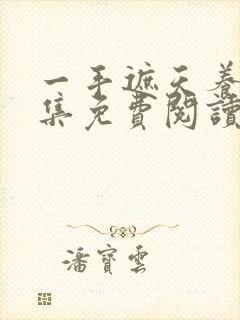 一手遮天养
集免費閱讀
潘寶雲